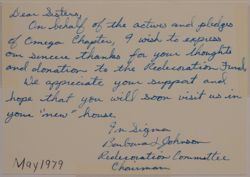 Dear Sisters,
On behalf of the actives and pledges
of Omega Chapter, I wish to express
our sincere thanks for your thoughts
and donation to the Redecoration Fund.
We appreciate your support and
hope that you will soon visit us in
your "new" house.
In Sigma
Barbara L Johnson
Redecoration Committee
Chairman
May 1979